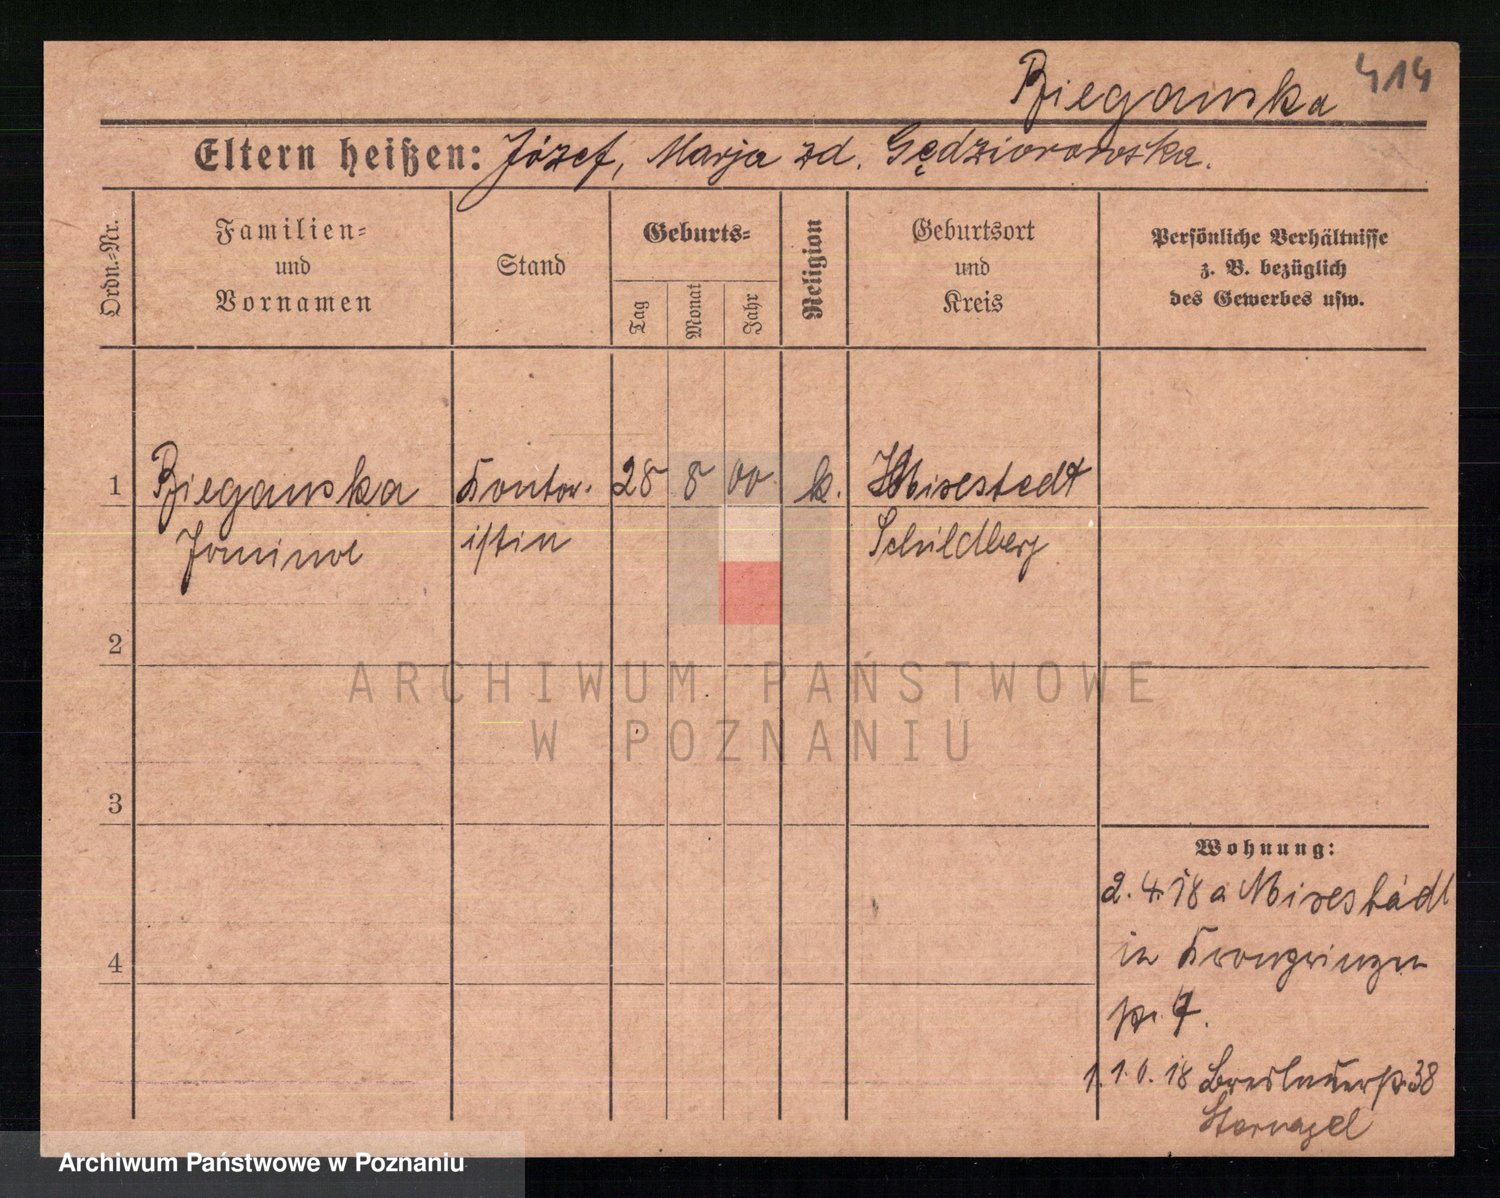 Bieganska 414
Eltern heißen: Józef, Marja zd. Gędziorowska.
Ordn.-Nr.
Familien-
und
Vornamen
Stand
Geburts-
Tag
Monat
Jahr
Religion
Geburtsort
und
Kreis
Persönliche Verhältnisse
z. B. bezüglich
des Gewerbes usw.
1 Bieganska Kontor. 28 8 00 k. Mixstadt
Janina istin Schildberg
2
3
4
ARCHIWUM PAŃSTWOWE
W POZNANIU
Wohnung:
2. 4. 18 a Mixstadt
in Kronprinzen
str. 7.
1. 10. 18 Breslauerstr. 38
Sternagel
Archiwum Państwowe w Poznaniu